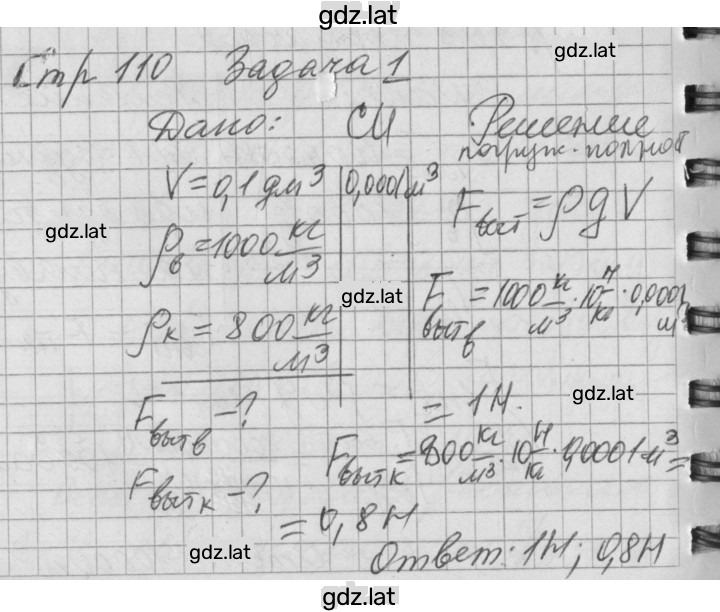 gdz.lat
gdz.lat
Стр 110 Задача 1
Дано: СИ Решение
погруж. полное
V = 0,1 дм³ 0,0001 м³
Fвыт = ρgV
gdz.lat
ρв = 1000 кг/м³
gdz.lat
Fвытв = 1000 кг/м³ · 10 Н/кг · 0,0001 м³
ρк = 800 кг/м³
gdz.lat
= 1Н.
Fвытв – ?
Fвытк = 800 кг/м³ · 10 Н/кг · 0,0001 м³ =
Fвытк – ?
= 0,8Н
gdz.lat
Ответ: 1Н; 0,8Н
gdz.lat